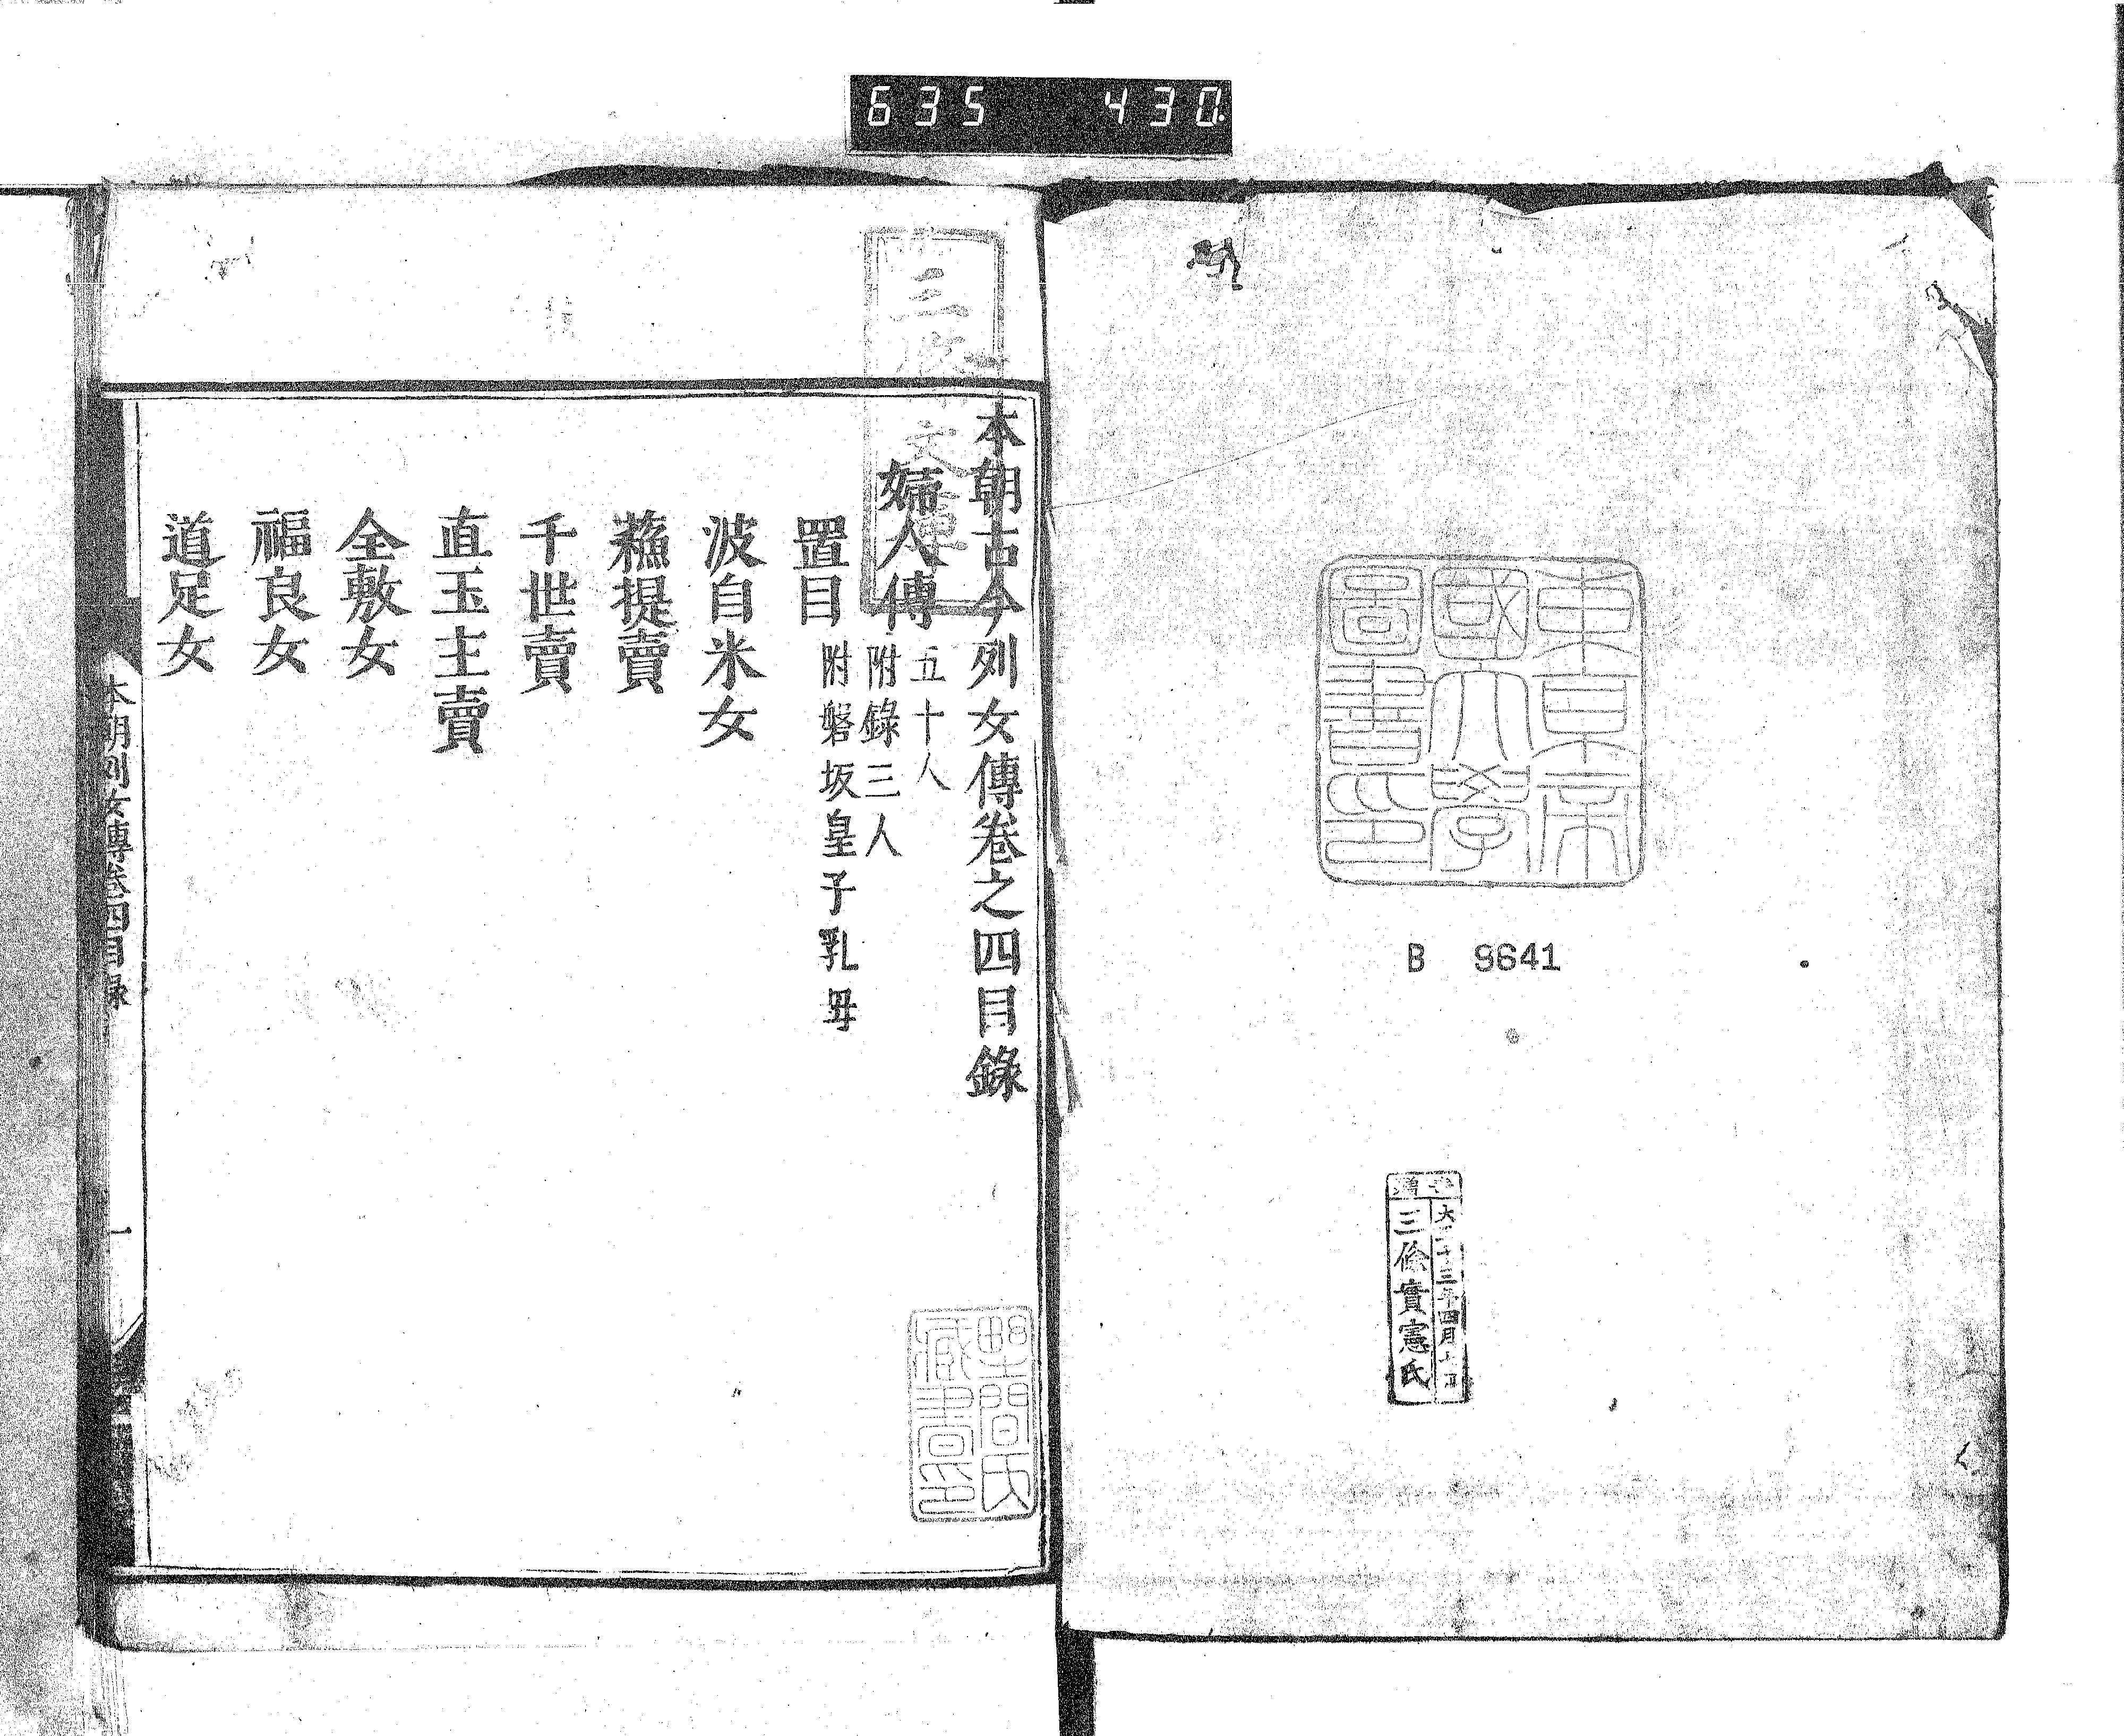 635 430
東京帝
國大學
圖書印
B 9641
三條實憲氏
三條文庫
本朝古今列女傳卷之四目錄
婦人傳 五十人
附錄三人
置目 附磐坂皇子乳母
波自米女
蘓提賣
千世賣
直玉主賣
全敷女
福良女
道足女
野間氏
藏書印
本朝列女傳卷四目錄 一